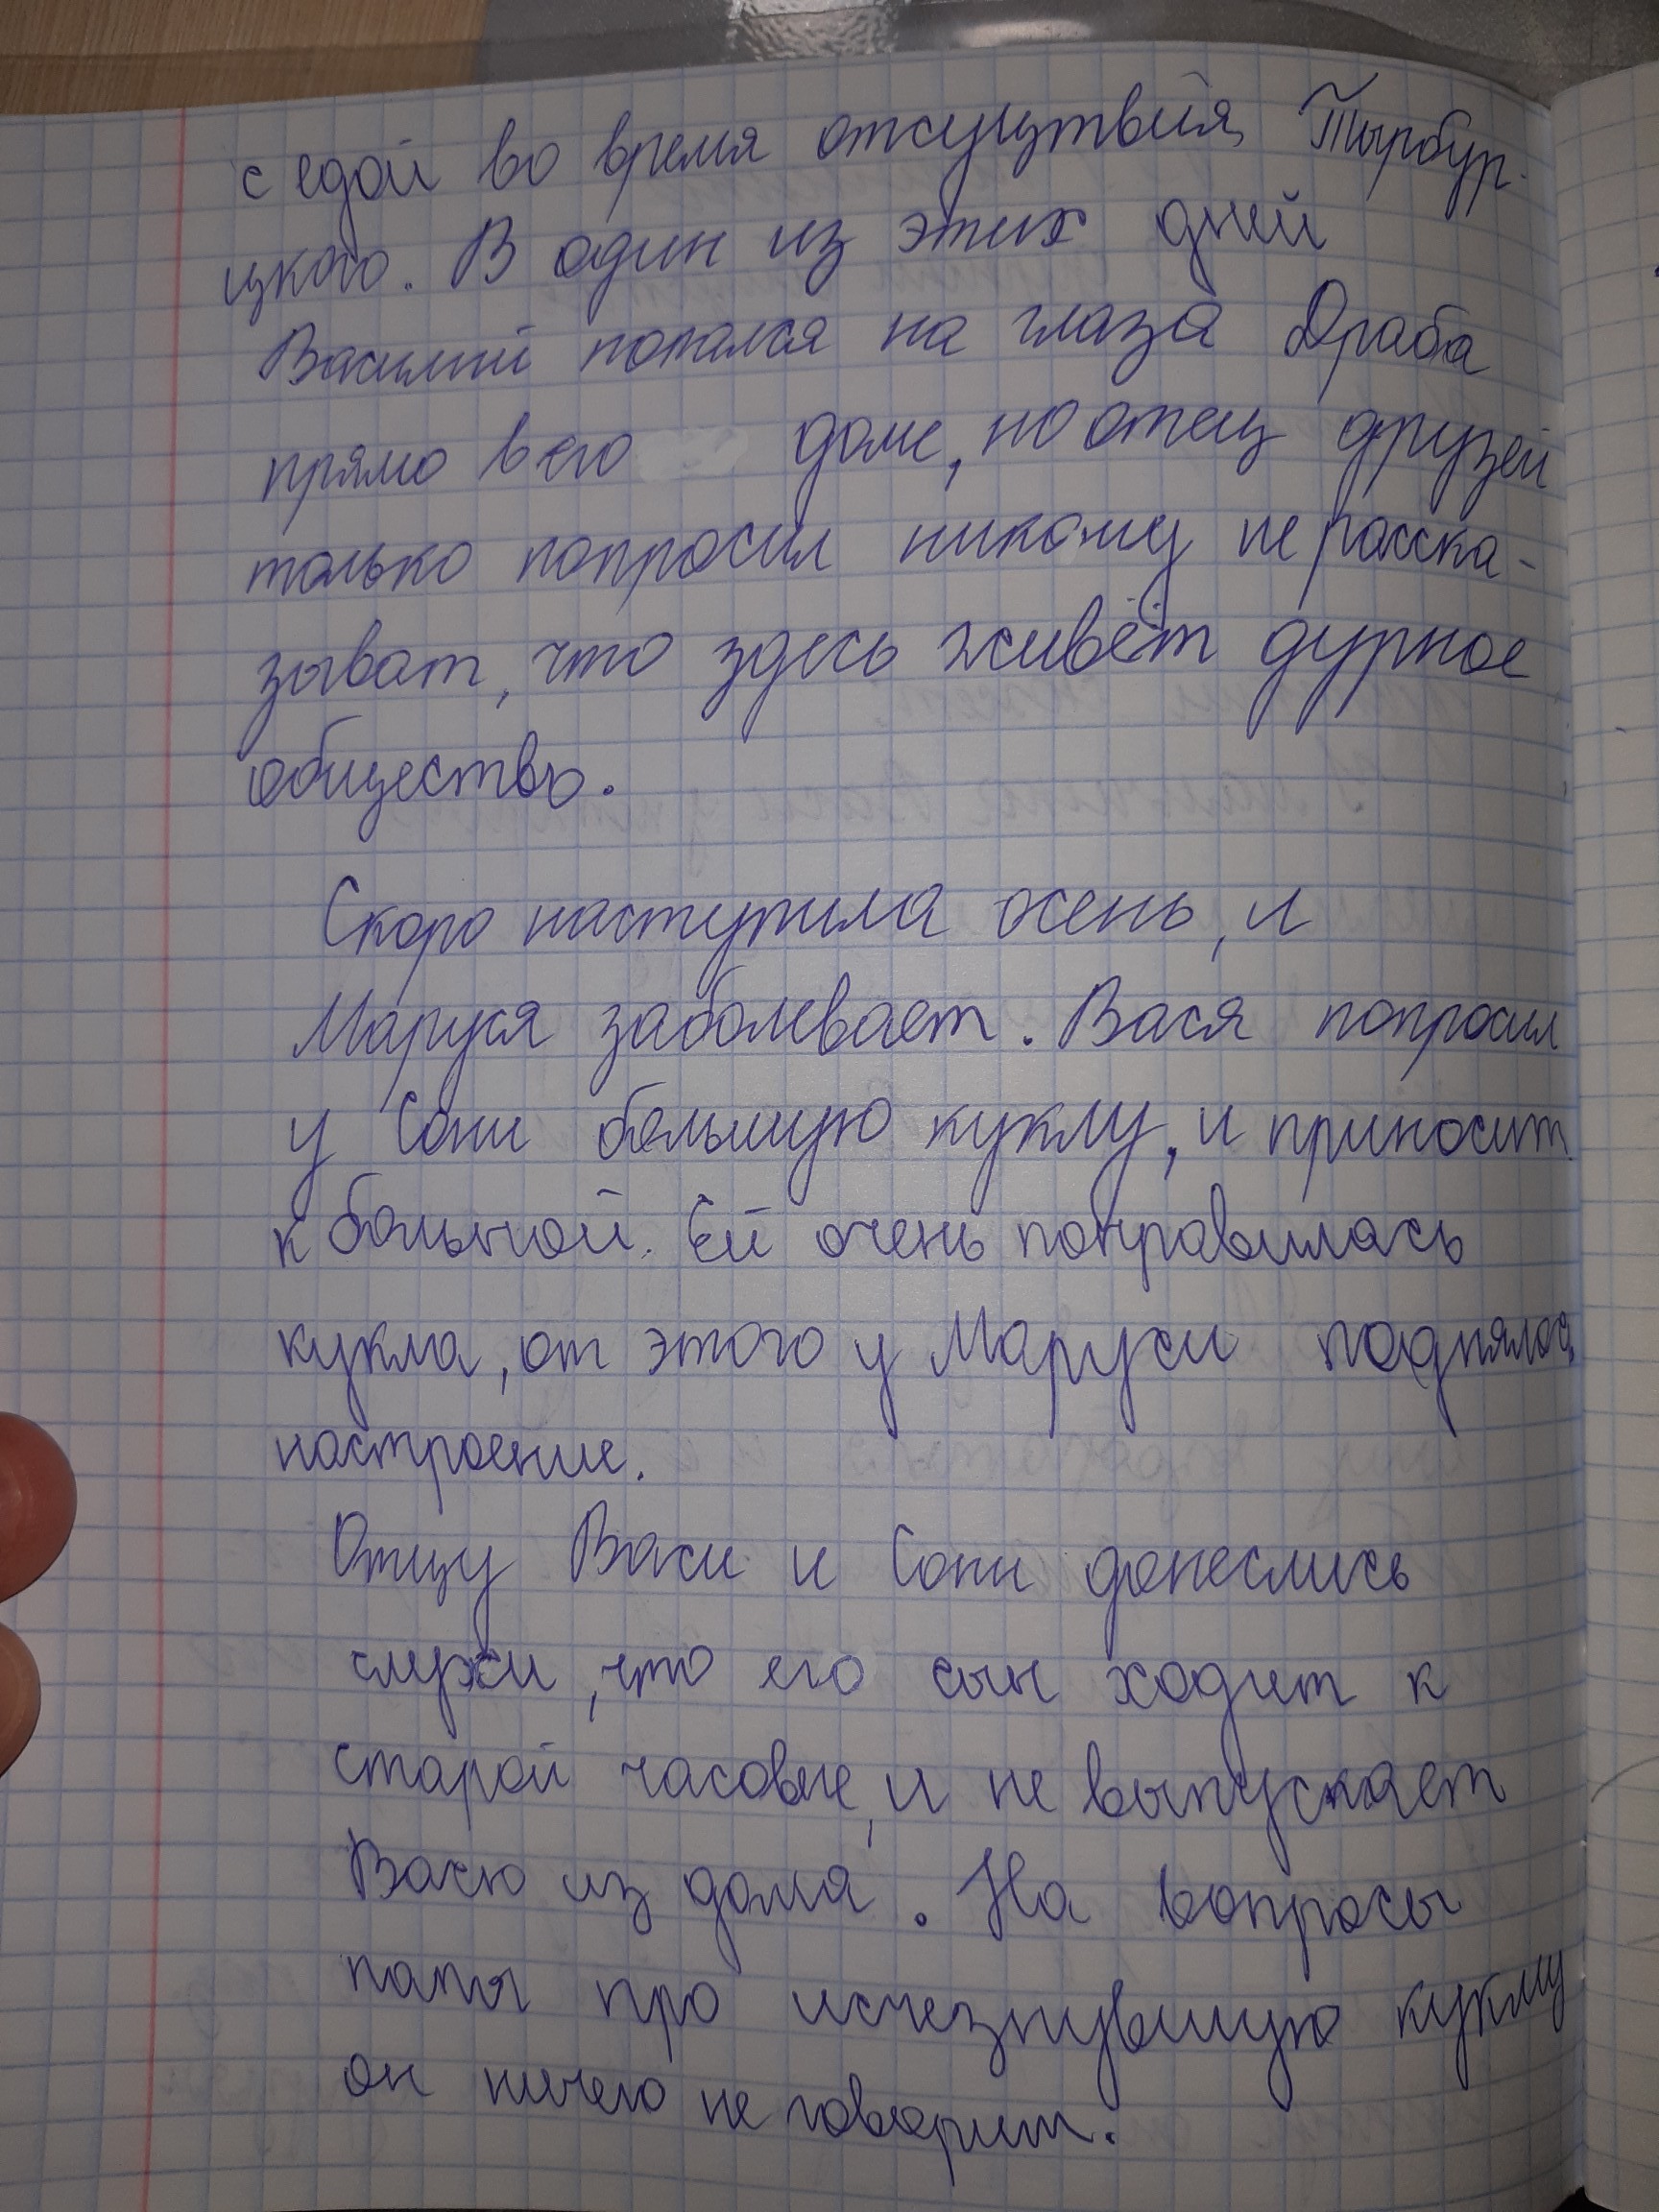 с едой во время отсуцтвия Тырбур-
цкого. В один из этих дней
Василий попался на глаза Драба
прямо в его доме, но отец друзей
только попросил никому не расска-
зыват, что здесь живёт дурное
общество.
Скоро наступила осень, и
Маруся заболевает. Вася попросил
у Сони большую куклу, и приносит
к больной. Ей очень понравилась
кукла, от этого у Маруси поднялось
настроение.
Отцу Васи и Сони донеслись
слухи, что его сын ходит к
старой часовне, и не выпускает
Васю из дома. На вопросы
папы про исчезнувшую куклу
он ничего не говорит.